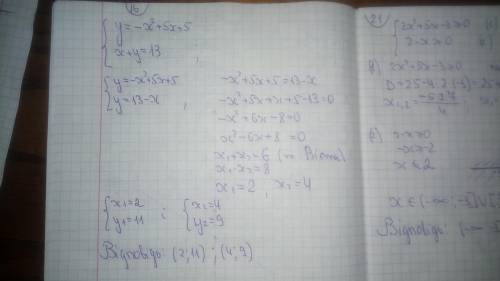 16
{ y=-x²+5x+5
{ x+y=13 ;
{ y=-x²+5x+5
{ y=13-x ,
-x²+5x+5=13-x
-x²+5x+x+5-13=0
-x²+6x-8=0
x²-6x+8=0
x₁+x₂=6 (т. Вієта)
x₁·x₂=8
x₁=2, x₂=4
{ x₁=2
{ y₁=11 ;
{ x₂=4
{ y₂=9
Відповідь: (2;11) ; (4;9)
21
{ 2x²+5x-3≥0 (1)
{ 2-x≥0
1) 2x²+5x-3≥0
D=25-4·2·(-3)=25+
x₁,₂=
2) 2-x≥0
-x≥-2
x≤2
x∈(-∞;-3]∪[
Відповідь: (-∞